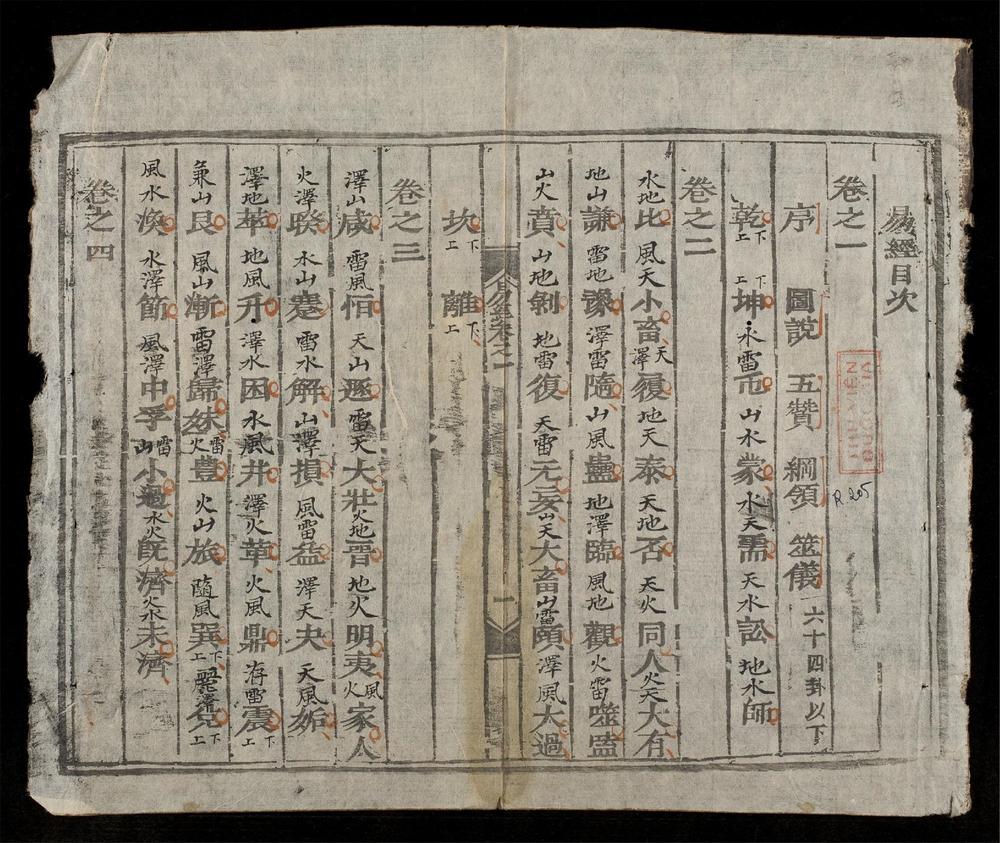 易經目次
卷之一
序 圖說 五贊 綱領 筮儀 六十四卦以下
乾上下 坤上下 水雷屯 山水蒙 水天需 天水訟 地水師
卷之二
水地比 風天小畜 天澤履 地天泰 天地否 天火同人 火天大有
地山謙 雷地豫 澤雷隨 山風蠱 地澤臨 風地觀 火雷噬嗑
山火賁 山地剝 地雷復 天雷无妄 山天大畜 山雷頤 澤風大過
易經卷之一 一
坎上下 離上下
卷之三
澤山咸 雷風恒 天山遯 雷天大壯 火地晋 地火明夷 風火家人
火澤睽 水山蹇 雷水解 山澤損 風雷益 澤天夬 天風姤
澤地萃 地風升 澤水困 水風井 澤火革 火風鼎 洊雷震上下
兼山艮 風山漸 雷澤歸妹 雷火豊 火山旅 隨風巽上下 麗澤兌上下
風水渙 水澤節 風澤中孚 雷山小過 水火旣濟 火水未濟
卷之四
THƯ VIỆN
QUỐC GIA
R.205